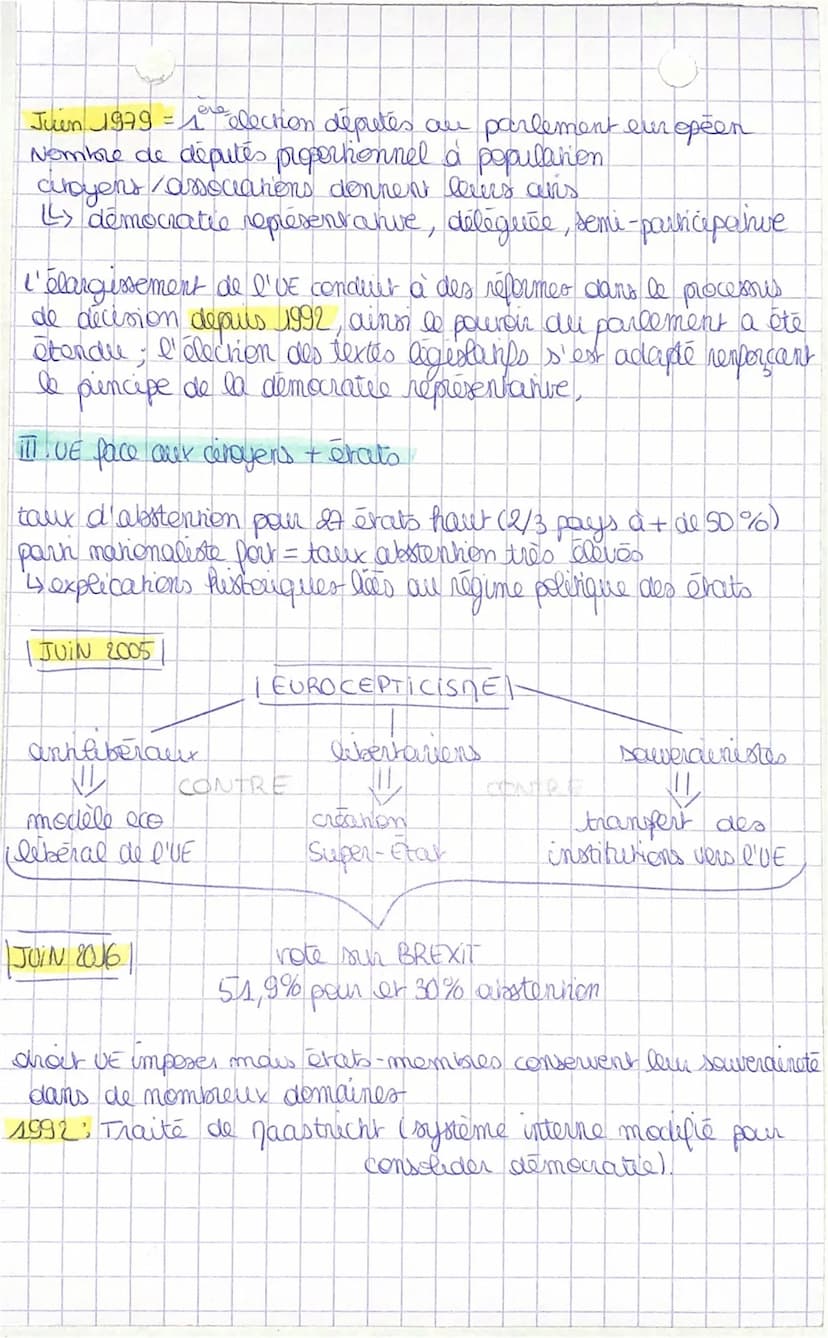 Juin 1979 = 1ère élection députés au parlement européen
Nombre de députés proportionnel à population
citoyens/associations donnent leurs avis
↳ démocratie représentative, déléguée, semi-participative
L'élargissement de l'UE conduit à des réformes dans le processus
de décision depuis 1992, ainsi le pouvoir du parlement a été
étendu ; l'élection des textes législatifs s'est adapté renforçant
le principe de la démocratie représentative,
III. UE face aux citoyens + états
taux d'abstention pour 27 états haut (2/3 pays à + de 50%)
parti nationaliste fort = taux abstention très élevés
↳ explications historiques liées au régime politique des états
JUIN 2005
EUROCEPTICISME
antilibéraux libertariens souverainistes
CONTRE CONTRE
modèle eco création transfert des
libéral de l'UE Super-Etat institutions vers l'UE
JUIN 2016 vote sur BREXIT
51,9% pour et 30% abstention
droit UE imposer mais états-membres conservent leur souveraineté
dans de nombreux domaines
1992: Traité de Maastricht (système interne modifié pour
consolider démocratie).